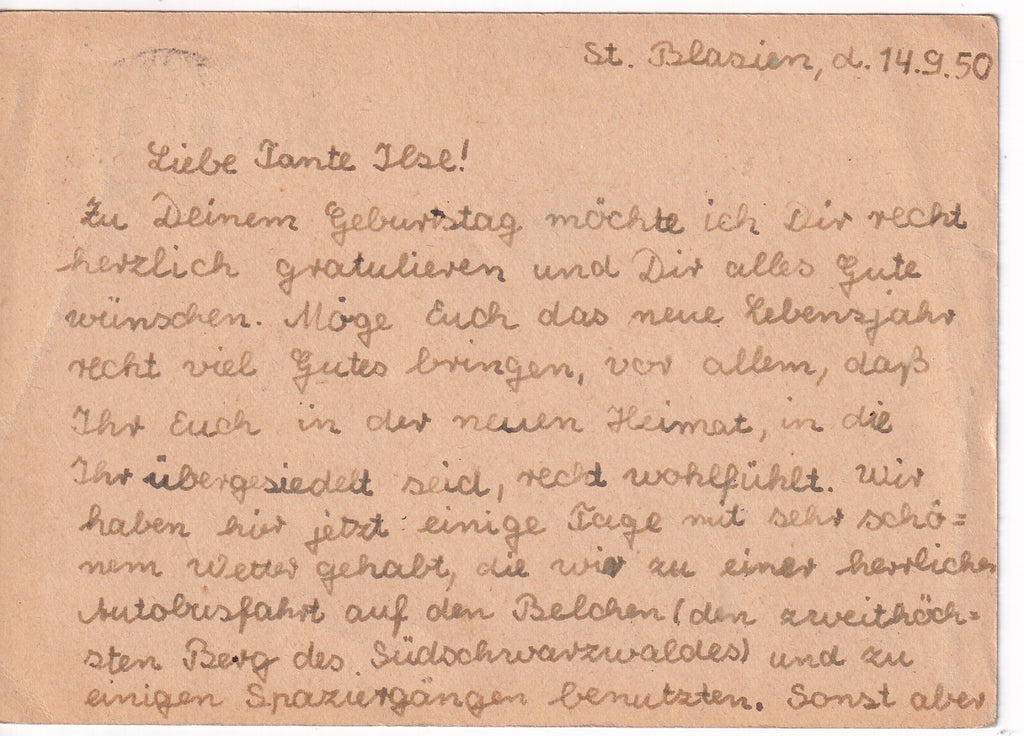 St. Blasien, d. 14.9.50
Liebe Tante Ilse!
Zu Deinem Geburtstag möchte ich Dir recht
herzlich gratulieren und Dir alles Gute
wünschen. Möge Euch das neue Lebensjahr
recht viel Gutes bringen, vor allem, daß
Ihr Euch in der neuen Heimat, in die
Ihr übergesiedelt seid, recht wohlfühlt. Wir
haben hier jetzt einige Tage mit sehr schö=
nem Wetter gehabt, die wir zu einer herrlichen
Autobusfahrt auf den Belchen (den zweithöch=
sten Berg des Südschwarzwaldes) und zu
einigen Spaziergängen benutzten. Sonst aber